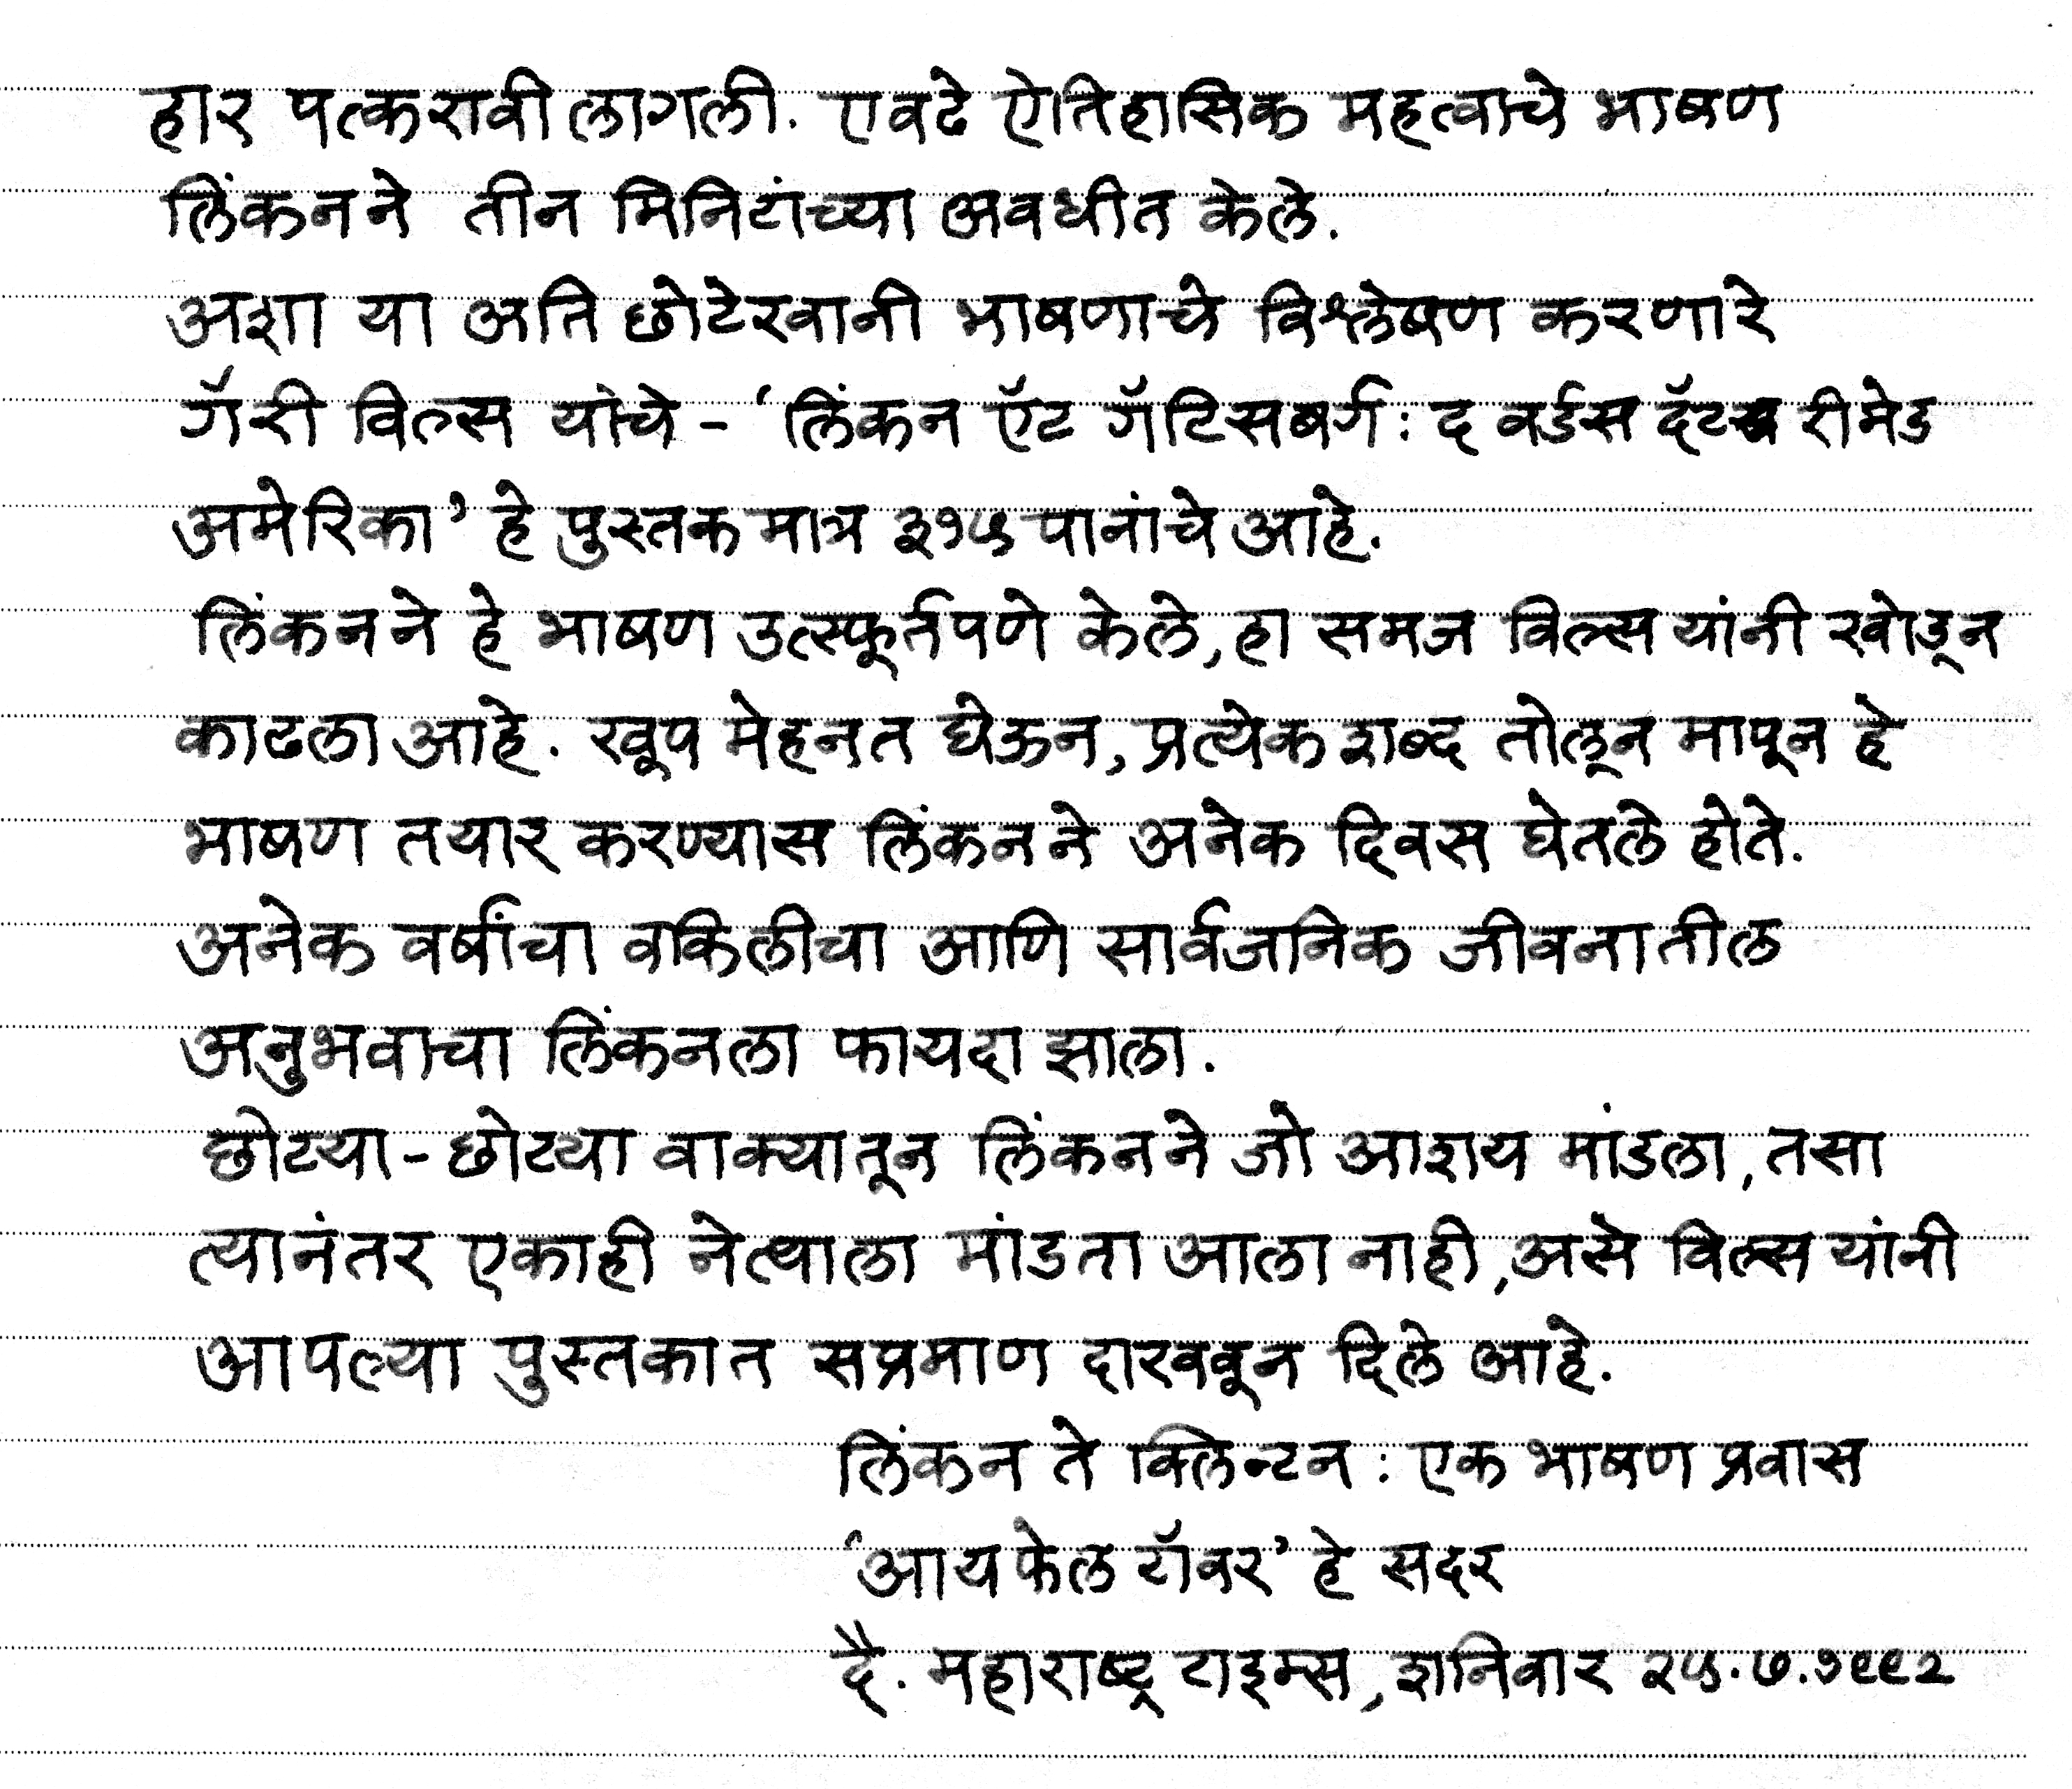 हार पत्करावी लागली. एवढे ऐतिहासिक महत्वाचे भाषण
लिंकनने तीन मिनिटांच्या अवधीत केले.
अशा या अति छोटेखानी भाषणाचे विश्लेषण करणारे
गॅरी विल्स यांचे - 'लिंकन ऍट गॅटिसबर्ग : द वर्डस दॅट रीमेड
अमेरिका' हे पुस्तक मात्र ३१५ पानांचे आहे.
लिंकनने हे भाषण उत्स्फूर्तपणे केले, हा समज विल्स यांनी खोडून
काढला आहे. खूप मेहनत घेऊन, प्रत्येक शब्द तोलून मापून हे
भाषण तयार करण्यास लिंकनने अनेक दिवस घेतले होते.
अनेक वर्षांचा वकिलीचा आणि सार्वजनिक जीवनातील
अनुभवाचा लिंकनला फायदा झाला.
छोट्या - छोट्या वाक्यातून लिंकनने जो आशय मांडला, तसा
त्यानंतर एकाही नेत्याला मांडता आला नाही, असे विल्स यांनी
आपल्या पुस्तकात सप्रमाण दाखवून दिले आहे.
लिंकन ते क्लिन्टन : एक भाषण प्रवास
'आयफेल टॉवर' हे सदर
दै. महाराष्ट्र टाइम्स, शनिवार २५.७.१९९२